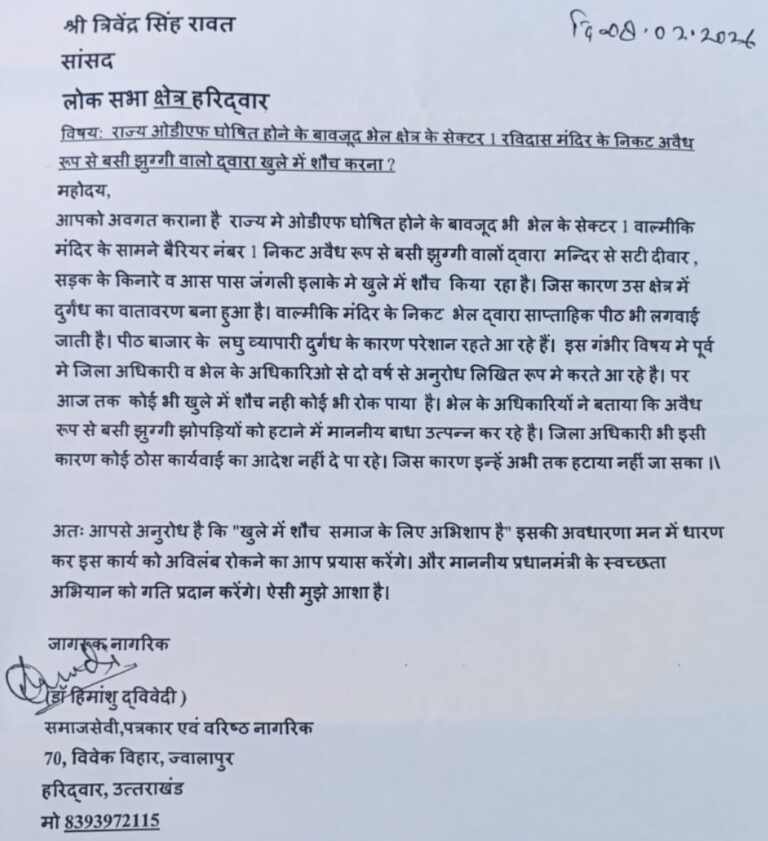 श्री त्रिवेंद्र सिंह रावत
दि-08.02.2026
सांसद
लोक सभा क्षेत्र हरिद्वार
विषय: राज्य ओडीएफ घोषित होने के बावजूद भेल क्षेत्र के सेक्टर 1 रविदास मंदिर के निकट अवैध
रूप से बसी झुग्गी वालो द्वारा खुले में शौच करना ?
महोदय,
आपको अवगत कराना है राज्य मे ओडीएफ घोषित होने के बावजूद भी भेल के सेक्टर 1 वाल्मीकि
मंदिर के सामने बैरियर नंबर 1 निकट अवैध रूप से बसी झुग्गी वालों द्वारा मन्दिर से सटी दीवार ,
सड़क के किनारे व आस पास जंगली इलाके मे खुले में शौच किया रहा है। जिस कारण उस क्षेत्र में
दुर्गंध का वातावरण बना हुआ है। वाल्मीकि मंदिर के निकट भेल द्वारा साप्ताहिक पीठ भी लगवाई
जाती है। पीठ बाजार के लघु व्यापारी दुर्गंध के कारण परेशान रहते आ रहे हैं। इस गंभीर विषय मे पूर्व
मे जिला अधिकारी व भेल के अधिकारिओ से दो वर्ष से अनुरोध लिखित रूप मे करते आ रहे है। पर
आज तक कोई भी खुले में शौच नही कोई भी रोक पाया है। भेल के अधिकारियों ने बताया कि अवैध
रूप से बसी झुग्गी झोपड़ियों को हटाने में माननीय बाधा उत्पन्न कर रहे है। जिला अधिकारी भी इसी
कारण कोई ठोस कार्यवाई का आदेश नहीं दे पा रहे। जिस कारण इन्हें अभी तक हटाया नहीं जा सका ।\
अतः आपसे अनुरोध है कि "खुले में शौच समाज के लिए अभिशाप है" इसकी अवधारणा मन में धारण
कर इस कार्य को अविलंब रोकने का आप प्रयास करेंगे। और माननीय प्रधानमंत्री के स्वच्छता
अभियान को गति प्रदान करेंगे। ऐसी मुझे आशा है।
जागरूक नागरिक
(डॉ हिमांशु द्विवेदी )
समाजसेवी,पत्रकार एवं वरिष्ठ नागरिक
70, विवेक विहार, ज्वालापुर
हरिद्वार, उत्तराखंड
मो 8393972115